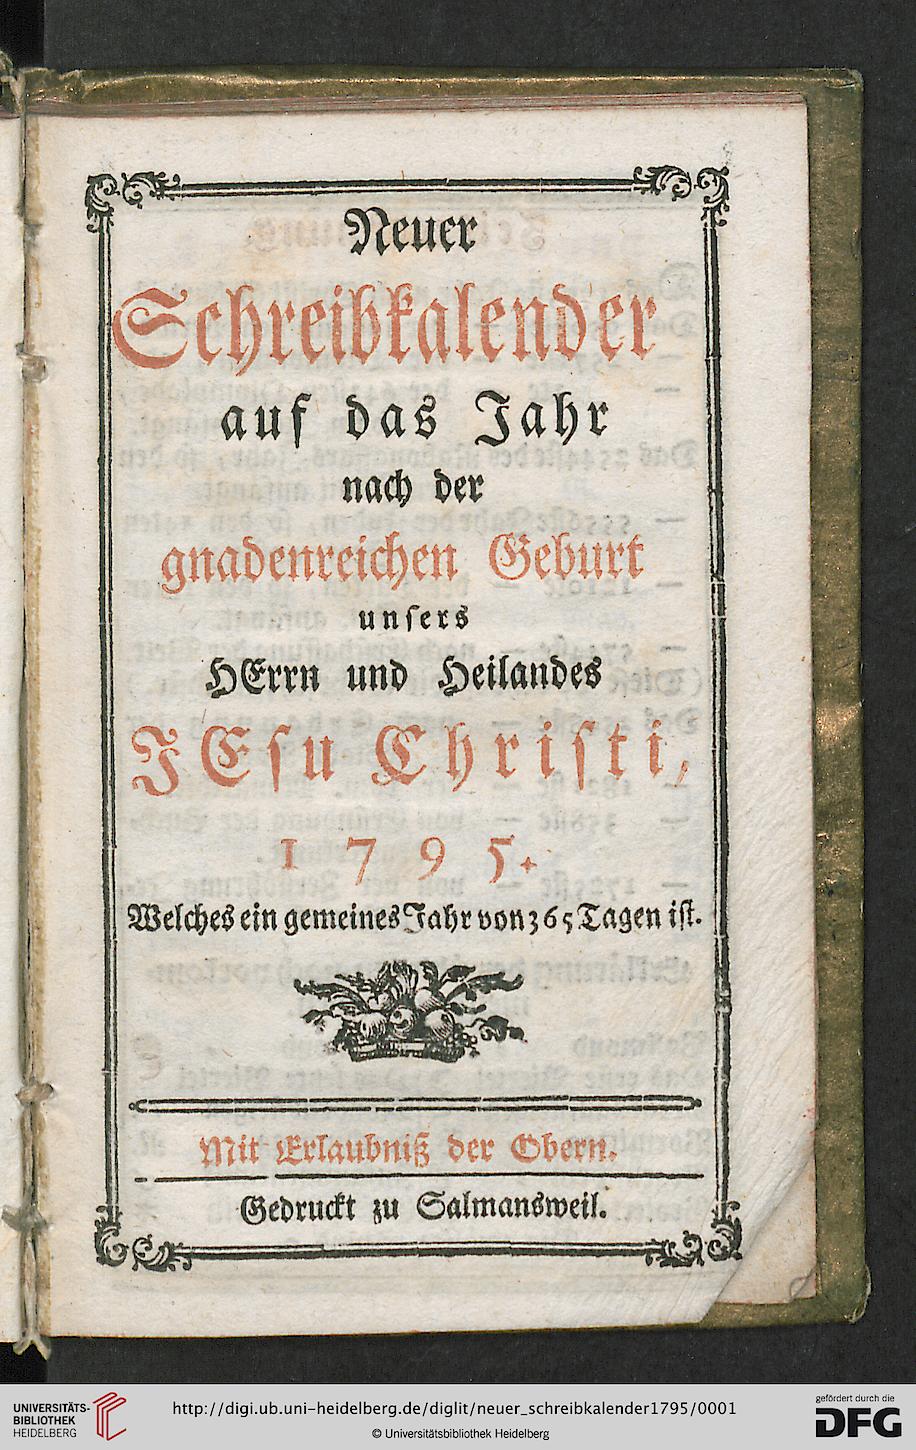 Neuer
Schreibkalender
auf das Jahr
nach der
gnadenreichen Geburt
unsers
HErrn und Heilandes
JEsu Christi,
1795.
Welches ein gemeines Jahr von 365 Tagen ist.
Mit Erlaubniß der Obern.
Gedruckt zu Salmansweil.
UNIVERSITÄTS-
BIBLIOTHEK
HEIDELBERG
http://digi.ub.uni-heidelberg.de/diglit/neuer_schreibkalender1795/0001
© Universitätsbibliothek Heidelberg
gefördert durch die
DFG